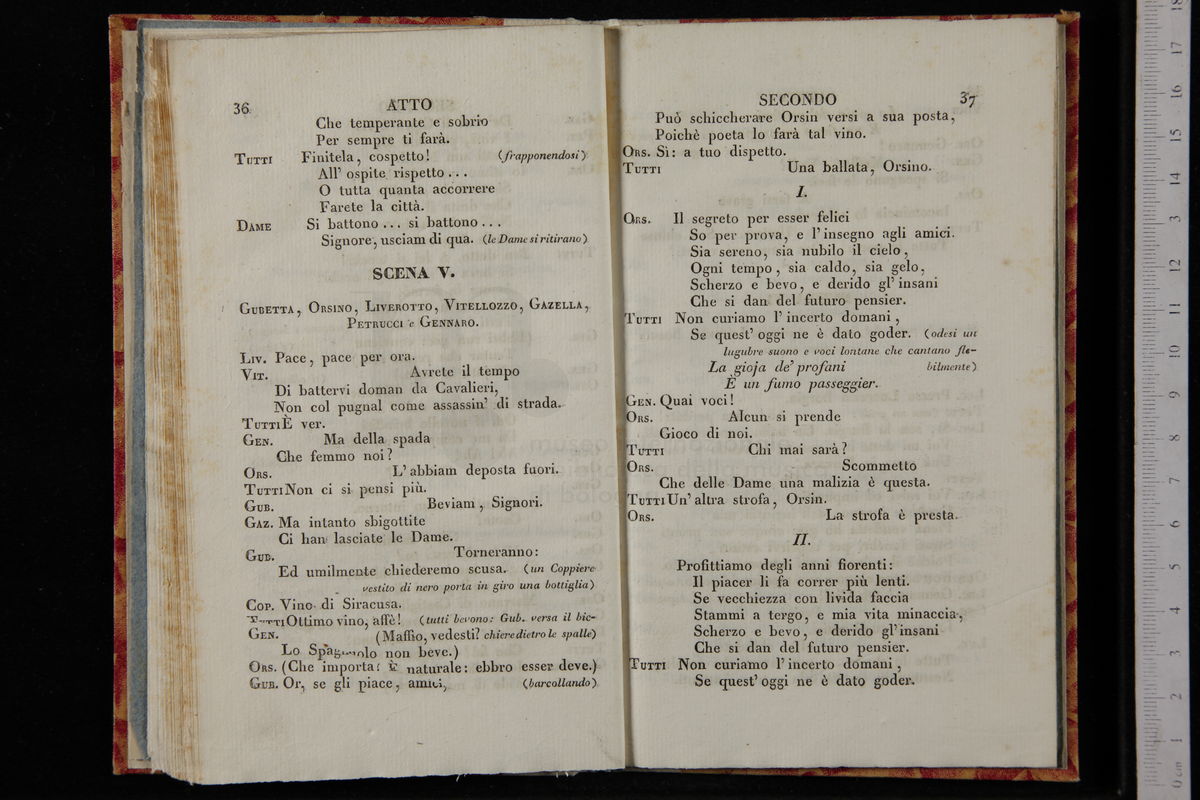 36
ATTO
Che temperante e sobrio
Per sempre ti farà.
TUTTI Finitela, cospetto! (frapponendosi)
All' ospite rispetto...
O tutta quanta accorrere
Farete la città.
DAME Si battono... si battono...
Signore, usciam di qua. (le Dame si ritirano)
SCENA V.
GUBETTA, ORSINO, LIVEROTTO, VITELLOZZO, GAZELLA,
PETRUCCI e GENNARO.
LIV. Pace, pace per ora.
VIT. Avrete il tempo
Di battervi doman da Cavalieri,
Non col pugnal come assassin' di strada.
TUTTI È ver.
GEN. Ma della spada
Che femmo noi?
ORS. L' abbiam deposta fuori.
TUTTI Non ci si pensi più.
GUB. Beviam, Signori.
GAZ. Ma intanto sbigottite
Ci han lasciate le Dame.
GUB. Torneranno:
Ed umilmente chiederemo scusa. (un Coppiere
vestito di nero porta in giro una bottiglia)
COP. Vino di Siracusa.
TUTTI Ottimo vino, affè! (tutti bevono: Gub. versa il bic-
GEN. (Maffio, vedesti? chiere dietro le spalle)
Lo Spagnuolo non beve.)
ORS. (Che importa? È naturale: ebbro esser deve.)
GUB. Or, se gli piace, amici, (barcollando)
SECONDO
37
Può schiccherare Orsin versi a sua posta,
Poichè poeta lo farà tal vino.
ORS. Sì: a tuo dispetto.
TUTTI Una ballata, Orsino.
I.
ORS. Il segreto per esser felici
So per prova, e l' insegno agli amici.
Sia sereno, sia nubilo il cielo,
Ogni tempo, sia caldo, sia gelo,
Scherzo e bevo, e derido gl' insani
Che si dan del futuro pensier.
TUTTI Non curiamo l' incerto domani,
Se quest' oggi ne è dato goder. (odesi un
lugubre suono e voci lontane che cantano fle-
La gioja de' profani bilmente)
È un fumo passeggier.
GEN. Quai voci!
ORS. Alcun si prende
Gioco di noi.
TUTTI Chi mai sarà?
ORS. Scommetto
Che delle Dame una malizia è questa.
TUTTI Un' altra strofa, Orsin.
ORS. La strofa è presta.
II.
Profittiamo degli anni fiorenti:
Il piacer li fa correr più lenti.
Se vecchiezza con livida faccia
Stammi a tergo, e mia vita minaccia,
Scherzo e bevo, e derido gl' insani
Che si dan del futuro pensier.
TUTTI Non curiamo l' incerto domani,
Se quest' oggi ne è dato goder.
0 cm 1 2 3 4 5 6 7 8 9 10 11 12 13 14 15 16 17 18